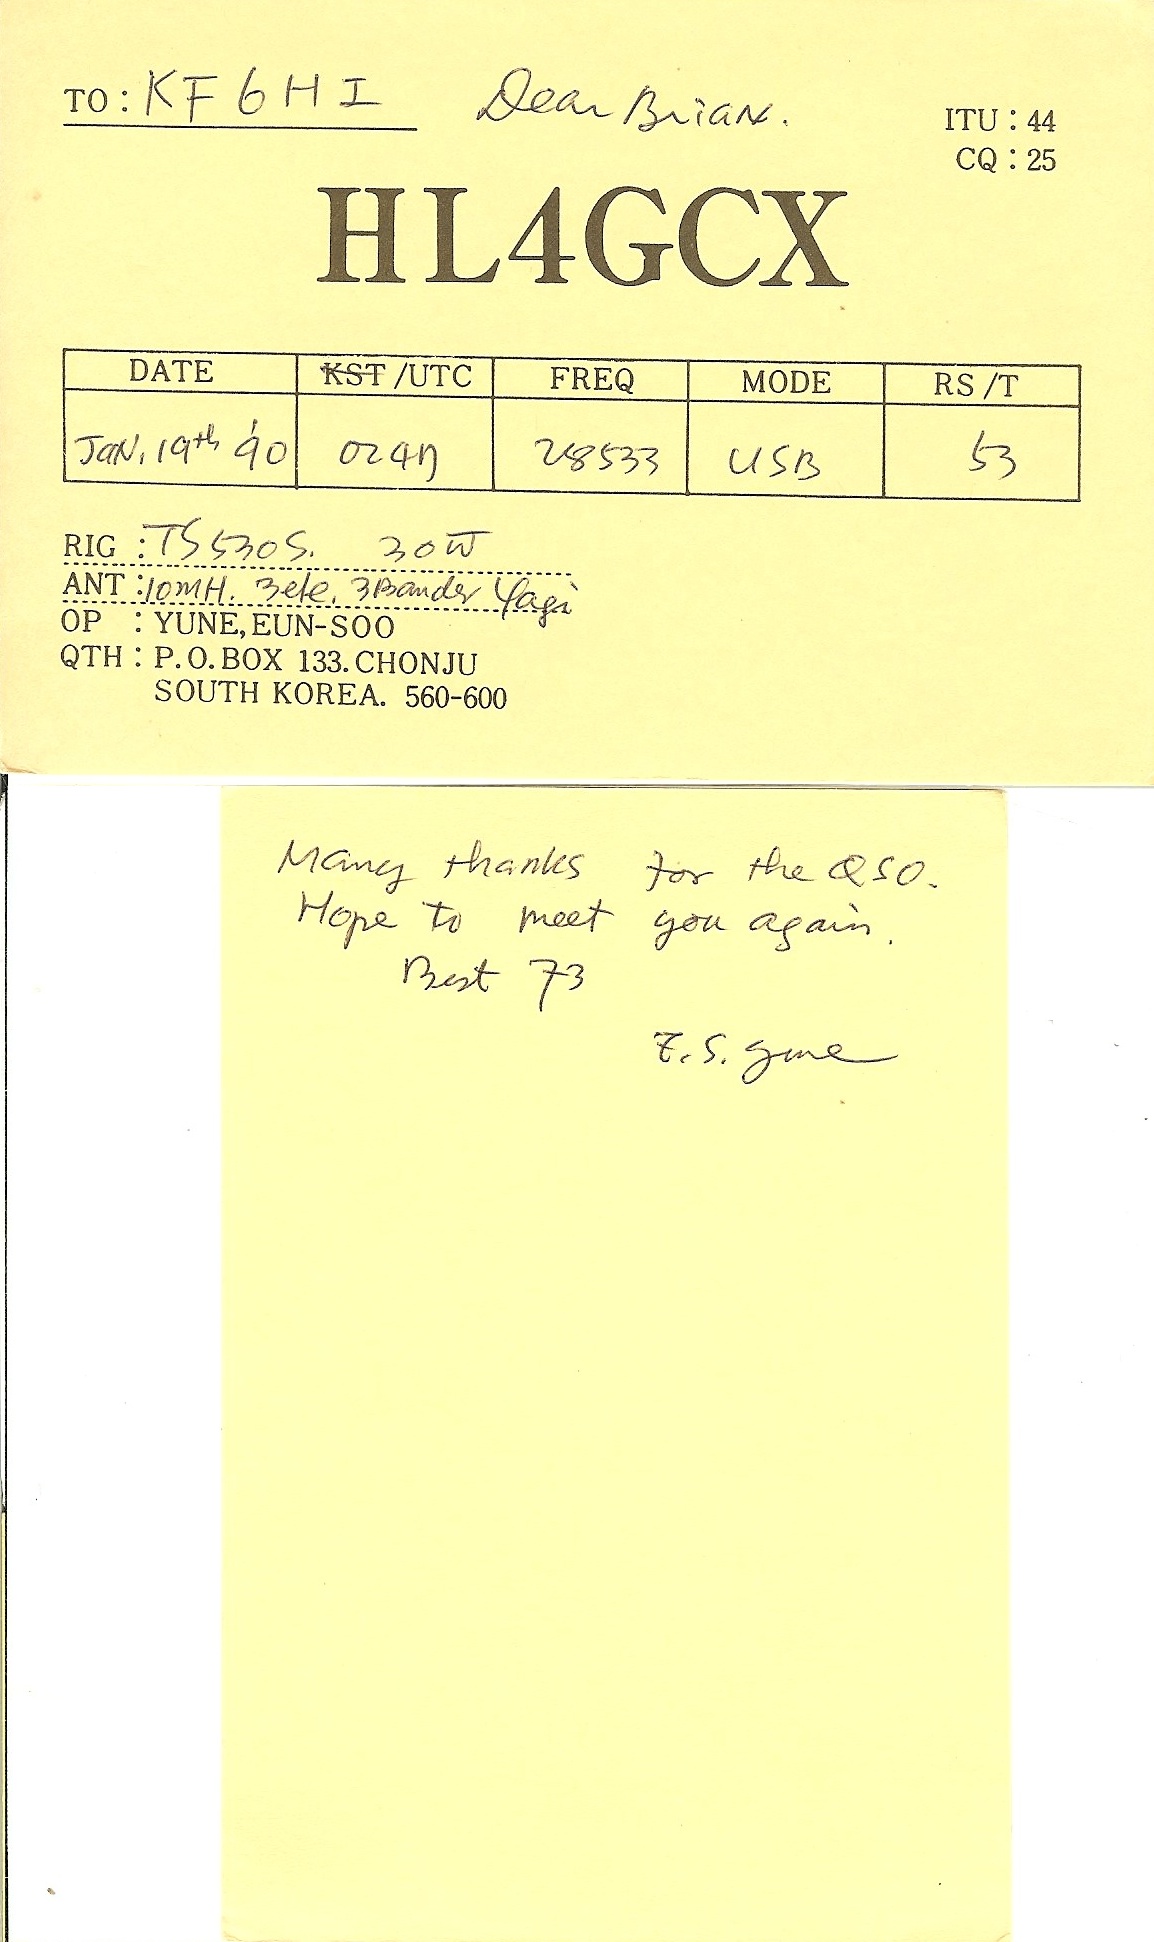 TO : KF6HI Dear Brian.
ITU : 44
CQ : 25
HL4GCX
DATE KST/UTC FREQ MODE RS/T
JAN, 19th '90 0247 28533 USB 53
RIG : TS530S. 30W
ANT : 10mH. 3ele. 3Bander Yagi
OP : YUNE, EUN-SOO
QTH : P.O.BOX 133. CHONJU
SOUTH KOREA. 560-600
Many thanks for the QSO.
Hope to meet you again.
Best 73
E.S. Yune